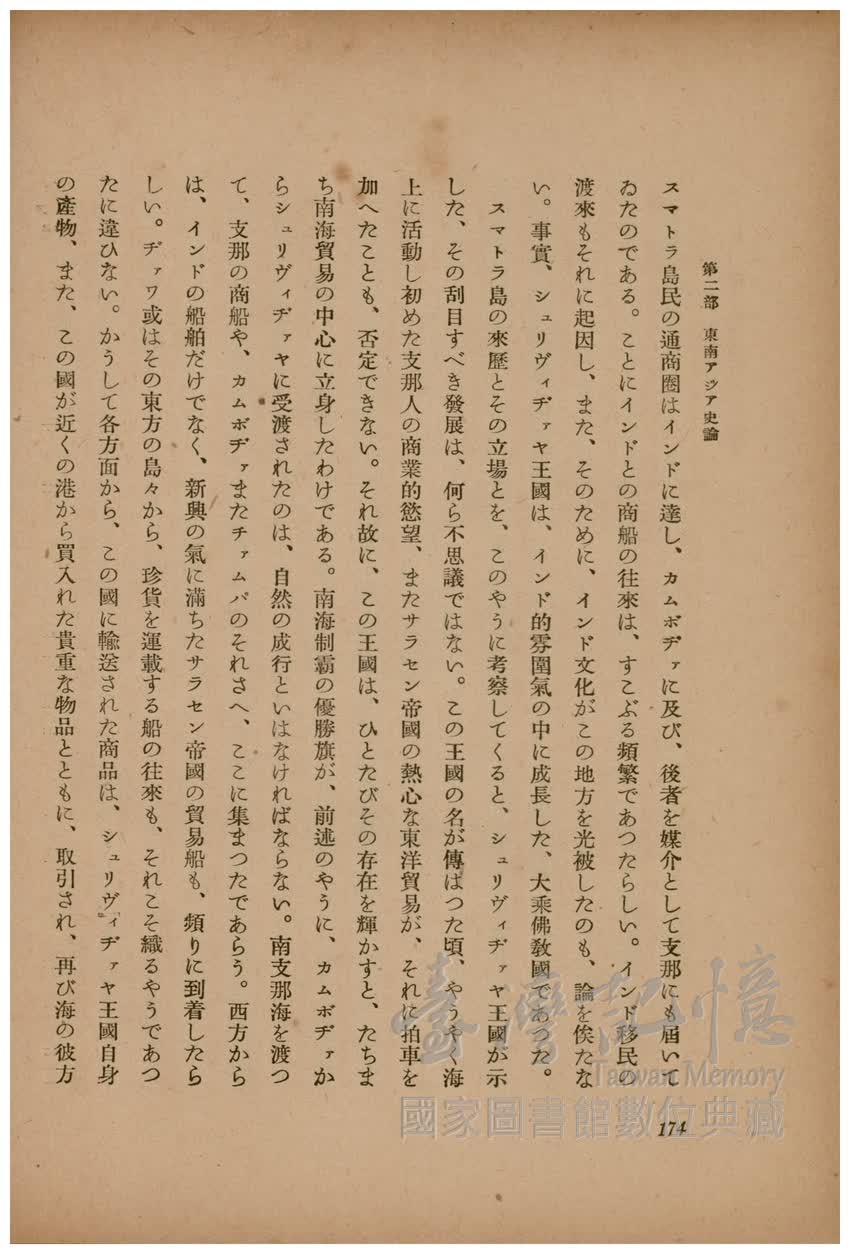 第二部　東南アジア史論
スマトラ島民の通商圏はインドに達し、カムボヂァに及び、後者を媒介として支那にも屆いて
ゐたのである。ことにインドとの商船の往來は、すこぶる頻繁であつたらしい。インド移民の
渡來もそれに起因し、また、そのために、インド文化がこの地方を光被したのも、論を俟たな
い。事實、シュリヴィヂァヤ王國は、インド的雰圍氣の中に成長した、大乘佛敎國であつた。
スマトラ島の來歷とその立場とを、このやうに考察してくると、シュリヴィヂァヤ王國が示
した、その刮目すべき發展は、何ら不思議ではない。この王國の名が傳はつた頃、やうやく海
上に活動し初めた支那人の商業的慾望、またサラセン帝國の熱心な東洋貿易が、それに拍車を
加へたことも、否定できない。それ故に、この王國は、ひとたびその存在を輝かすと、たちま
ち南海貿易の中心に立身したわけである。南海制霸の優勝旗が、前述のやうに、カムボヂァか
らシュリヴィヂァヤに受渡されたのは、自然の成行といはなければならない。南支那海を渡つ
て、支那の商船や、カムボヂァまたチァムパのそれさへ、ここに集まつたであらう。西方から
は、インドの船舶だけでなく、新興の氣に滿ちたサラセン帝國の貿易船も、頻りに到着したら
しい。ヂァワ或はその東方の島々から、珍貨を運載する船の往來も、それこそ織るやうであつ
たに違ひない。かうして各方面から、この國に輸送された商品は、シュリヴィヂァヤ王國自身
の產物、また、この國が近くの港から買入れた貴重な物品とともに、取引され、再び海の彼方
174
臺灣記憶
Taiwan Memory
國家圖書館數位典藏